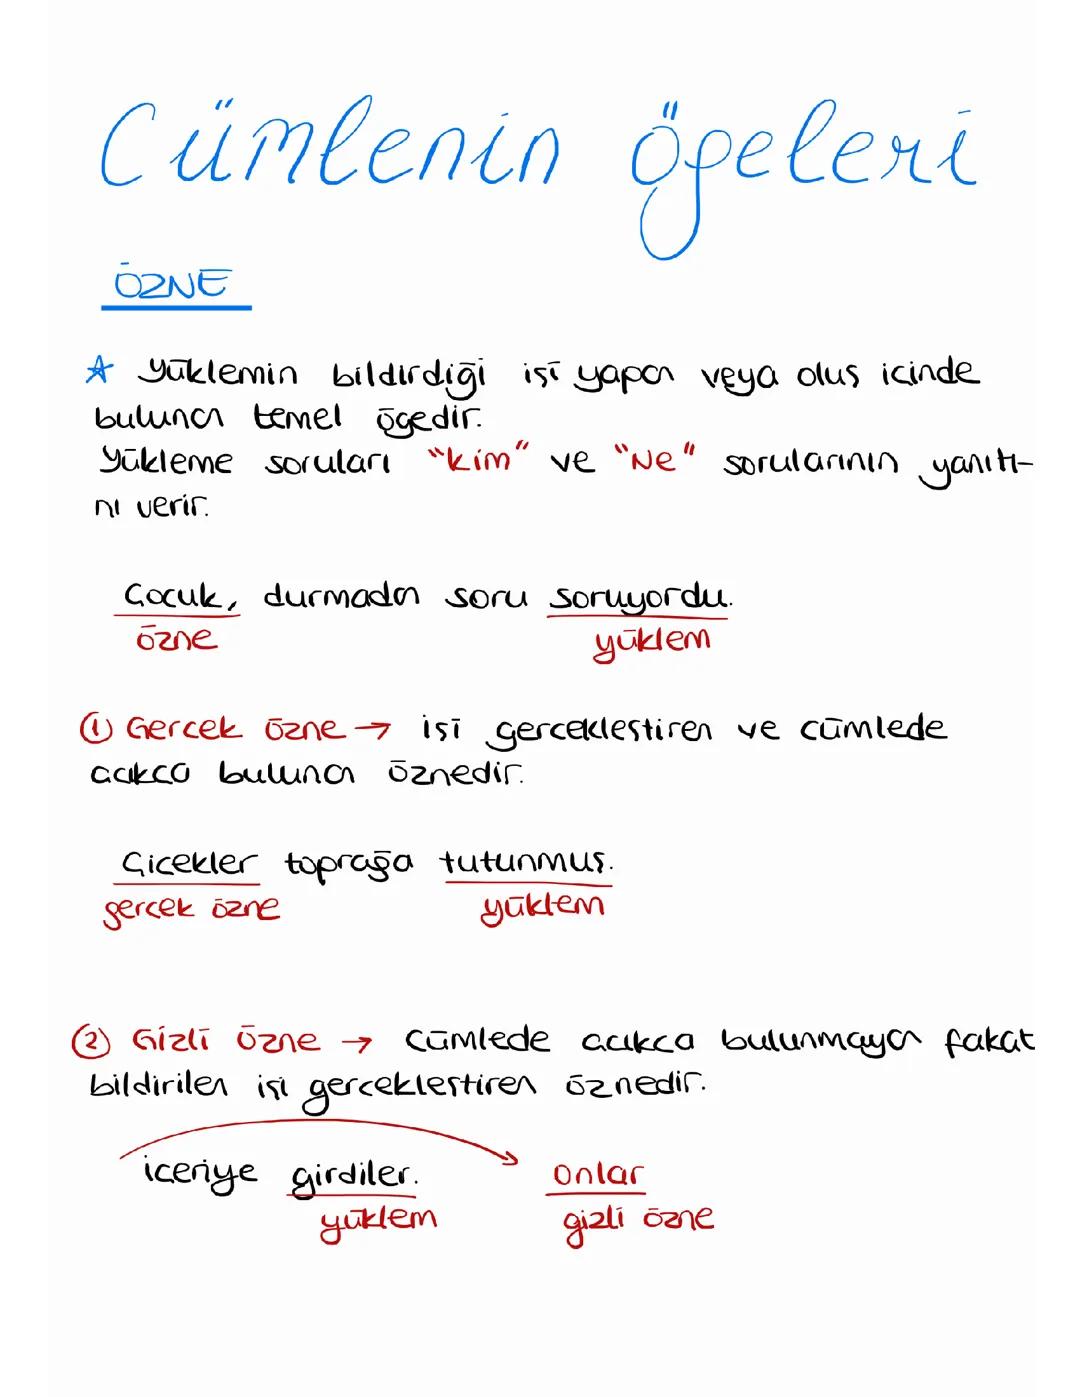 Cümlenin ögeleri
ÖZNE
☆ Yüklemin bildirdiği işi yapan veya oluş icinde
bulunan temel ögedir.
Yükleme soruları "kim" ve "Ne" sorularının yanıtı-
nı verir.
Çocuk, durmadan soru soruyordu.
özne yüklem
① Gercek özne → işi gerceklestiren ve cümlede
acıkca bulunan öznedir.
Çicekler toprağa tutunmuş.
gercek özne yüklem
② Gizli özne → Cümlede acıkca bulunmayan fakat
bildirilen işi gercekleştiren öznedir.
iceriye girdiler. onlar
yüklem gizli özne